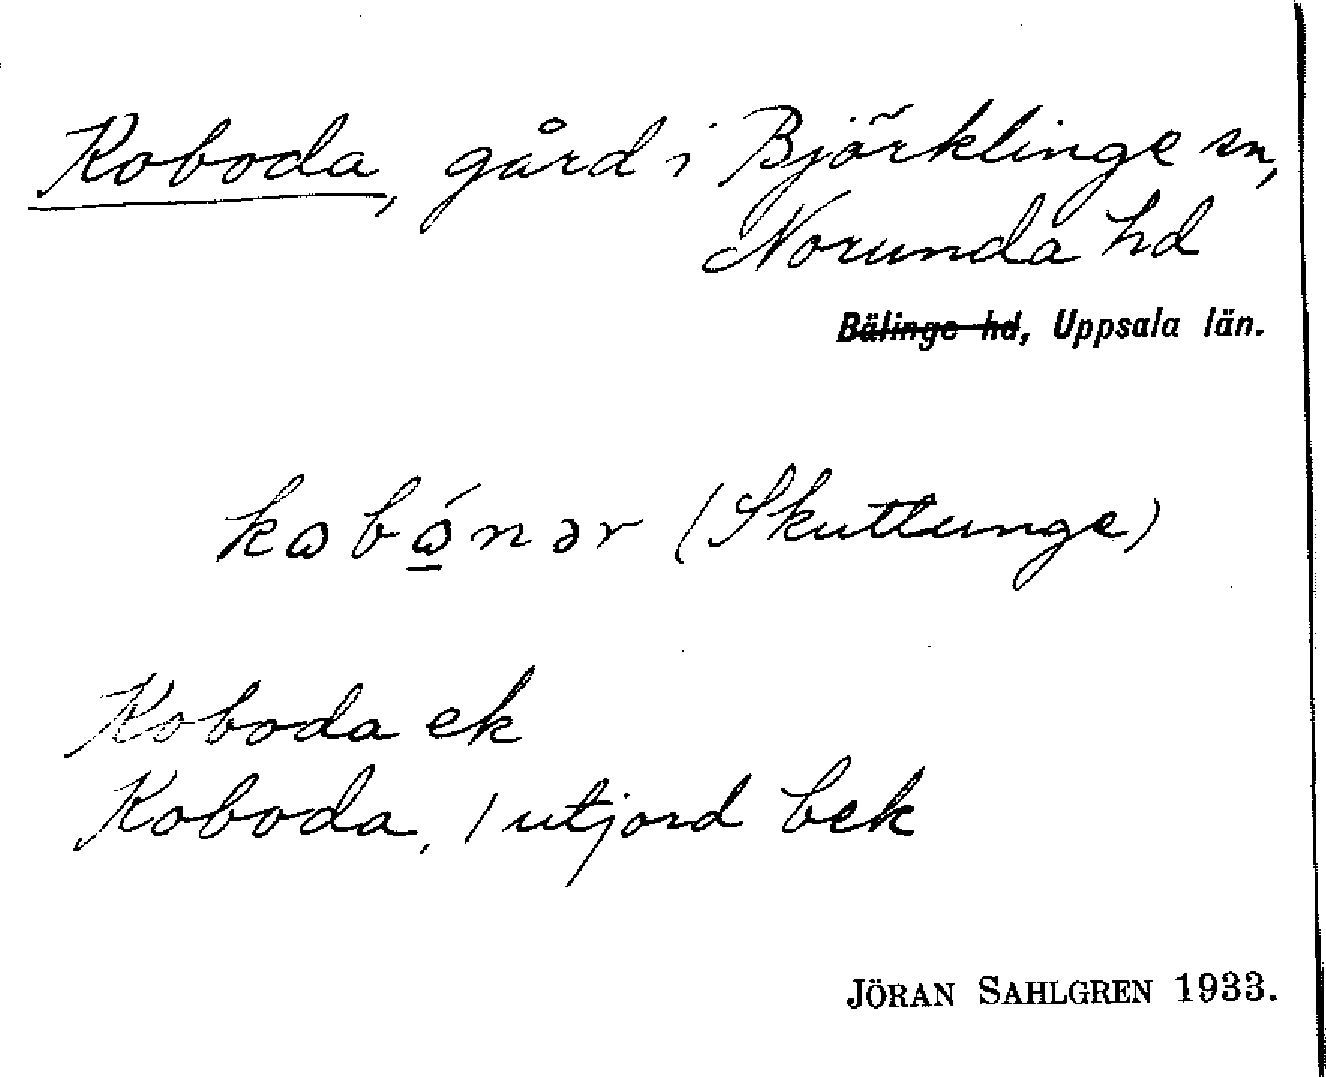 Koboda, gård i Björklinge sn,
Norunda hd
Bälinge hd, Uppsala län.
kɷbɷ́nər (Skuttunge)
Koboda ek
Koboda, 1 utjord bek
JÖRAN SAHLGREN 1933.